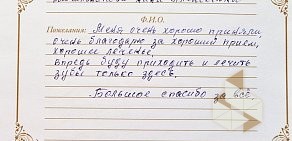 Ф.И.О.
Пожелания: Меня очень хорошо приняли
очень благодарю за хороший прием,
хорошее лечение,
впредь буду приходить и лечить
зубы только здесь.
Большое спасибо за всё.